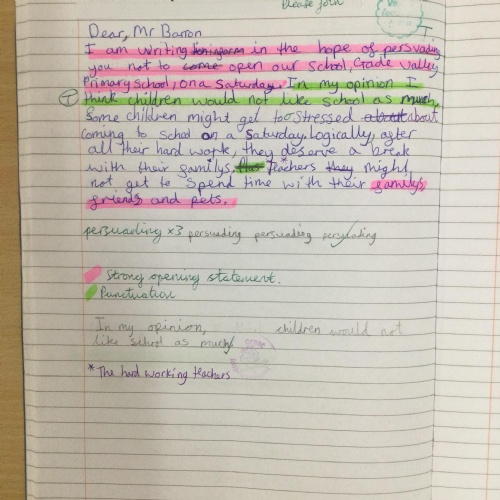 Please join
Dear, Mr Barron
I am writing in the hope of persuading
you not to come open our school, Gade Valley
Primary School, on a Saturday. In my opinion I
T think children would not like school as much.
Some children might get to stressed about about
coming to school on a Saturday. Logically, after
all their hard work, they deserve a break
with their familys. *teachers they might
not get to spend time with their familys,
friends and pets.
persuading x3 persuading persuading persuading
Strong opening statement.
Punctuation
In my opinion, children would not
like school as much
*The hard working teachers